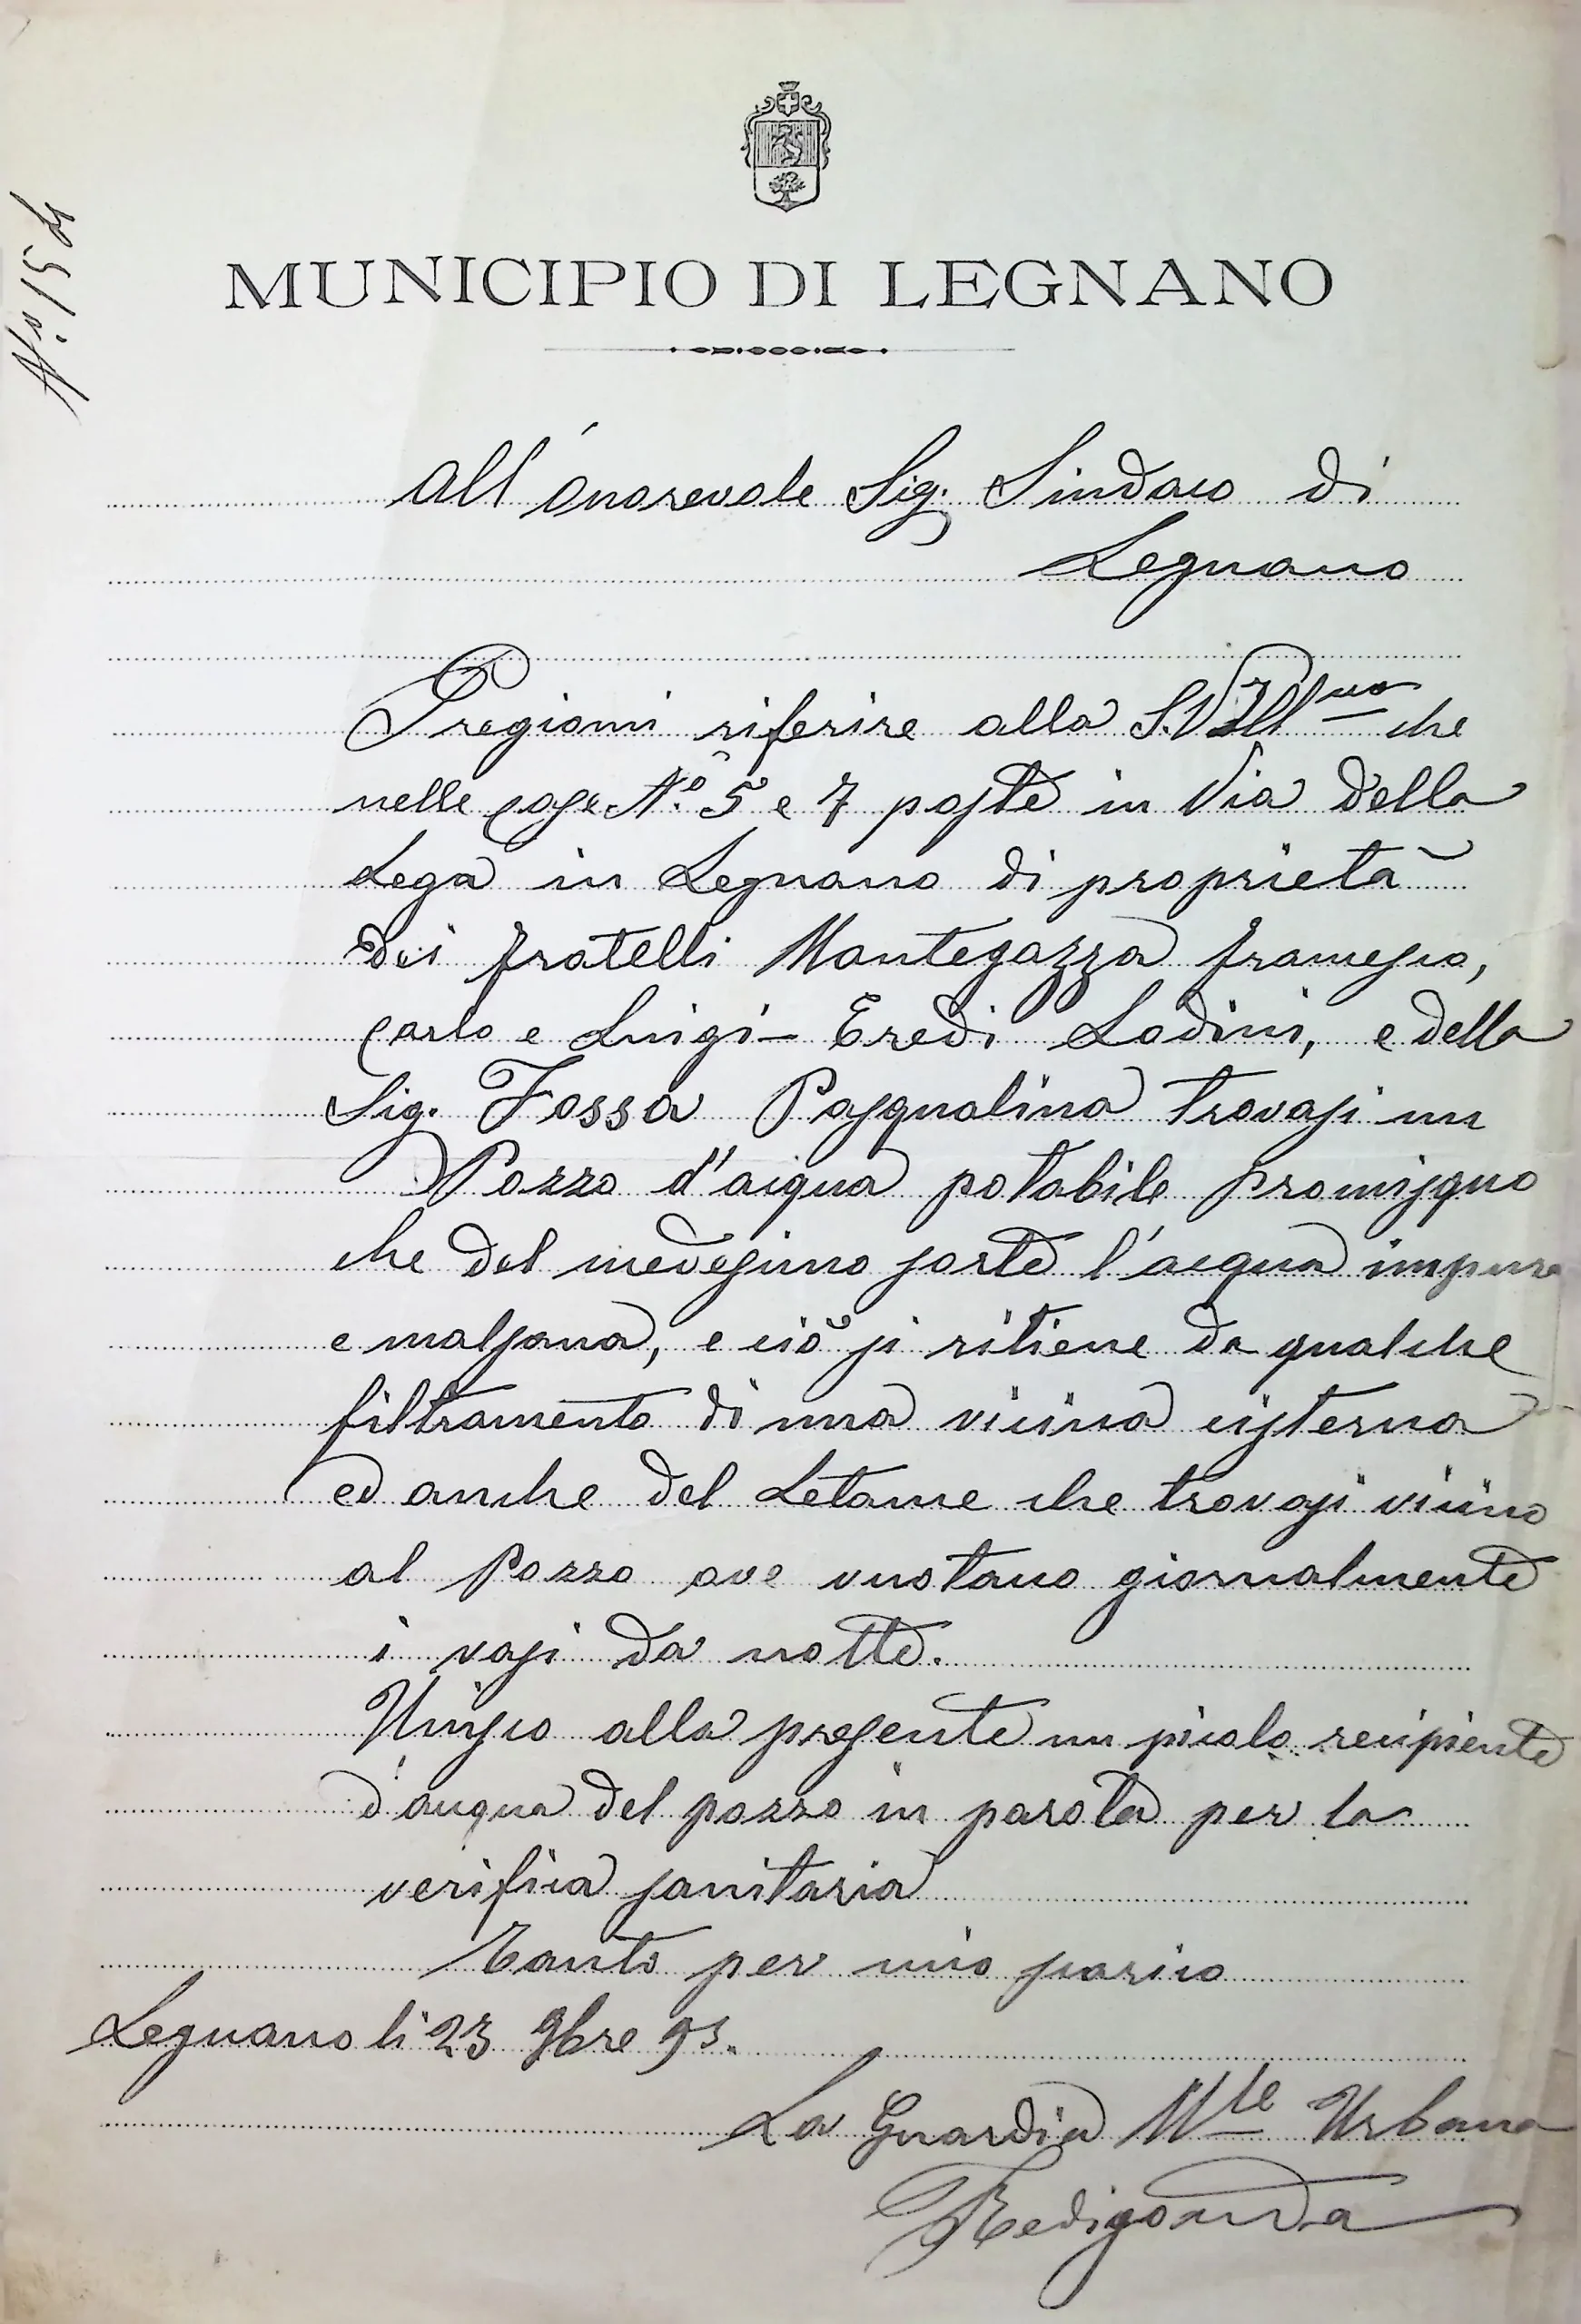 Nº 154
MUNICIPIO DI LEGNANO
All'Onorevole Sig. Sindaco di
Legnano
Pregiomi riferire alla S.V. Ill.ma che
nelle case Nº 5 e 7 poste in Via della
Lega in Legnano di proprietà
dei fratelli Mantegazza Francesco,
Carlo e Luigi - Eredi Lodini, e della
Sig. Fossa Pasqualina trovasi un
Pozzo d'acqua potabile promisquo
che del medesimo sorte l'acqua impura
e malsana, e ciò si ritiene da qualche
filtramento di una vicina cisterna
ed anche del Letame che trovasi vicino
al Pozzo ove vuotano giornalmente
i vasi da notte.
Unisco alla presente un picolo recipiente
d'acqua del pozzo in parola per la
verifica sanitaria
Tanto per mio scarico
Legnano li 23 9bre 93.
La Guardia M.le Urbana
Redigonda